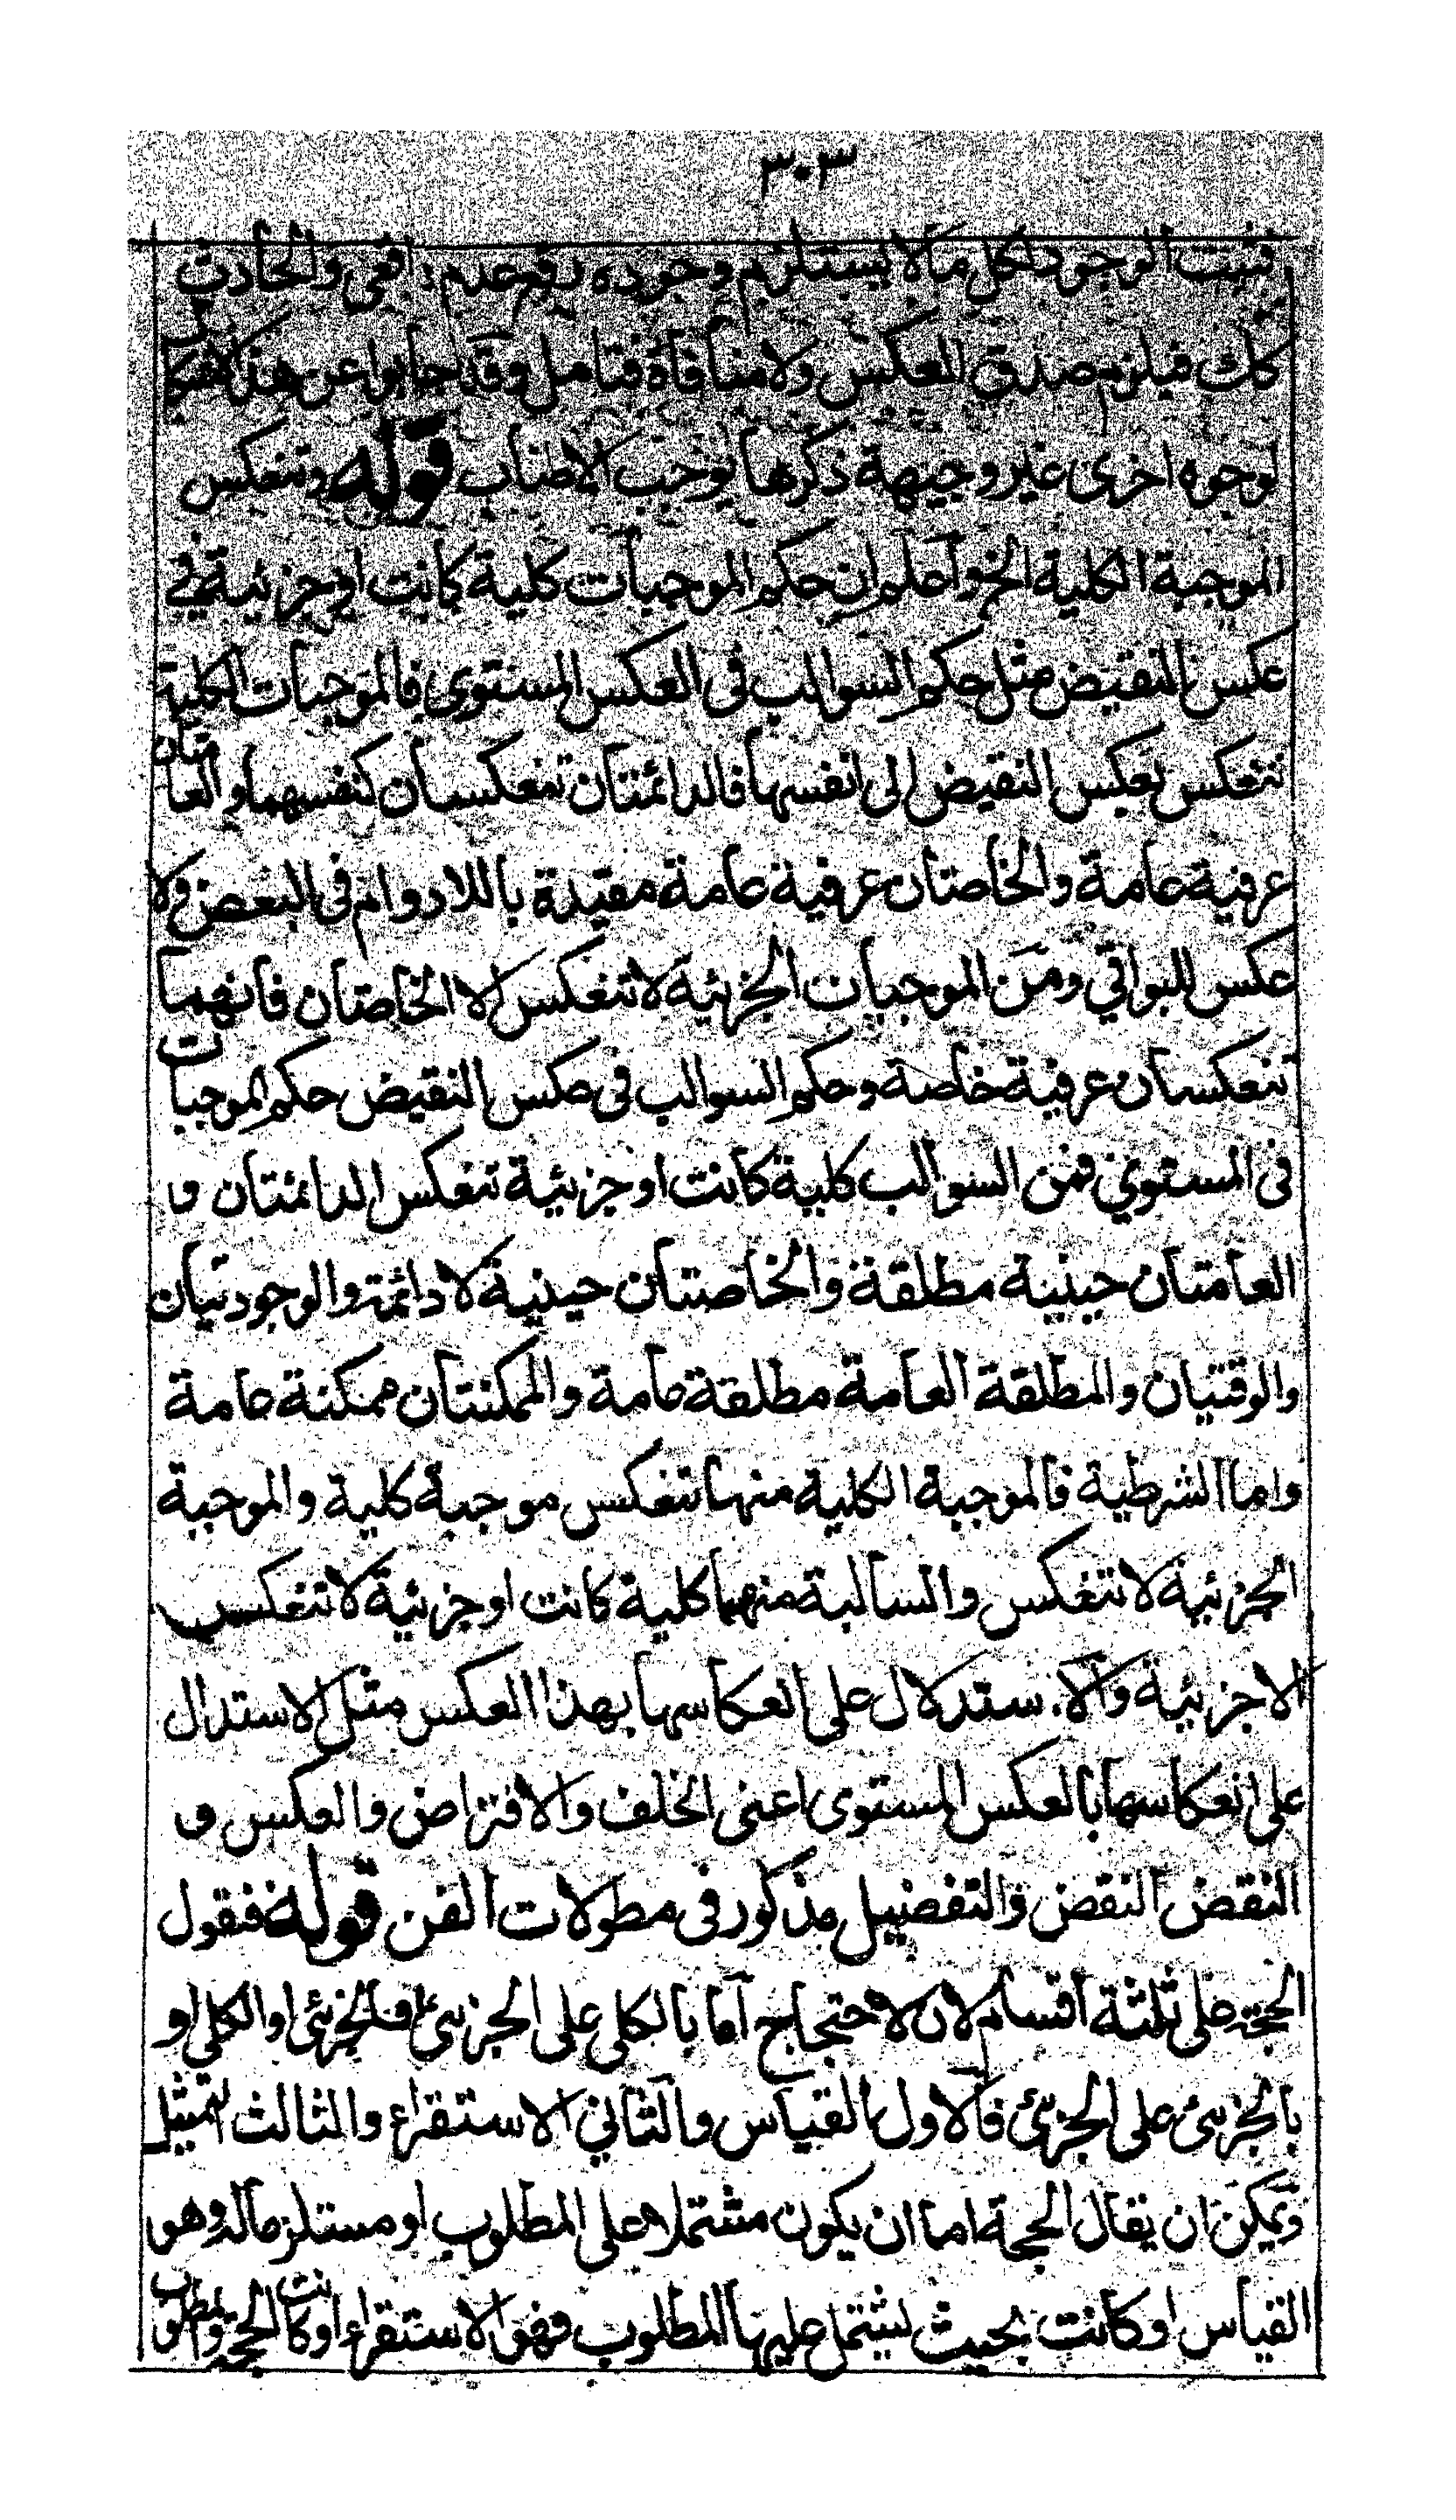 ٣٠٣
فثبت الوجود لكل ما لا يستلزم وجوده رفع عدم واقعى والحادث
كك فيلزم صدق العكس ولا منافاة فتامل وقد اجابوا عن هذا الاشكال
بوجوه اخرى غير وجيهة ذكرها يوجب الاطناب قوله وتنعكس
الموجبة الكلية الخ واعلم ان حكم الموجبات كلية كانت او جزئية في
عكس النقيض مثل حكم السوالب فى العكس المستوى فالموجبات الكلية
تنعكس بعكس النقيض الى انفسها فالدائمتان تنعكسان كنفسهما والعامتان
عرفية عامة والخاصتان عرفية عامة مقيدة باللادوام فى البعض ولا
عكس للبواقي ومن الموجبات الجزئية لا تنعكس الا الخاصتان فانهما
تنعكسان عرفية خاصة وحكم السوالب فى عكس النقيض حكم الموجبات
فى المستوي فمن السوالب كلية كانت او جزئية تنعكس الدائمتان و
العامتان حينية مطلقة والخاصتان حينية لا دائمة والوجوديتان
والوقتيتان والمطلقة العامة مطلقة عامة والممكنتان ممكنة عامة
واما الشرطية فالموجبة الكلية منها تنعكس موجبة كلية والموجبة
الجزئية لا تنعكس والسالبة منهما كلية كانت او جزئية لا تنعكس
الا جزئية والاستدلال على انعكاسها بهذا العكس مثل الاستدال
على انعكاسها بالعكس المستوى اعنى الخلف والافتراض والعكس و
النقض النقض والتفصيل مذكور فى مطولات الفن قوله فنقول
الحجة على ثلثة اقسام لان الاحتجاج اما بالكلى على الجزئى او الجزئى او الكلى او
بالجزئى على الجزئ فالاول القياس والثاني الاستقراء والثالث التمثيل
ويمكن ان يقال الحجة اما ان يكون مشتملا على المطلوب او مستلزما له وهو
القياس او كانت بحيث يشتمل عليها المطلوب فهو الاستقراء او كانت الحجة والمطلوب